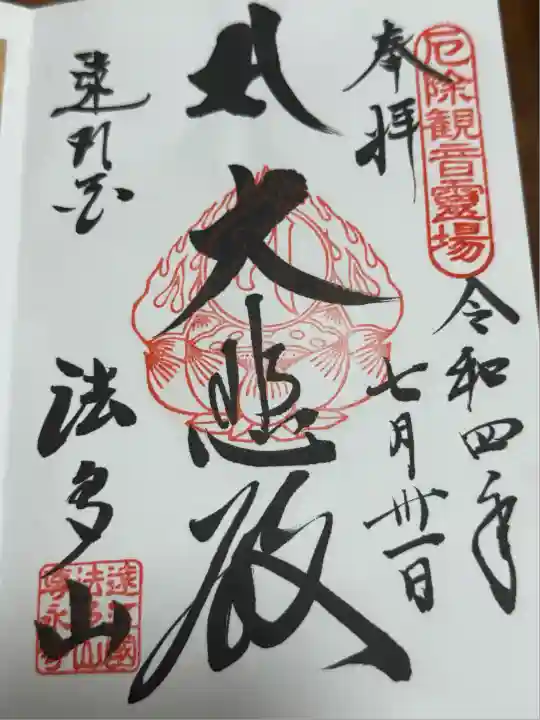 厄除観音霊場
奉拝
令和四年
七月卅一日
大悲殿
遠州
法多山
遠江國
法多山
尊永寺